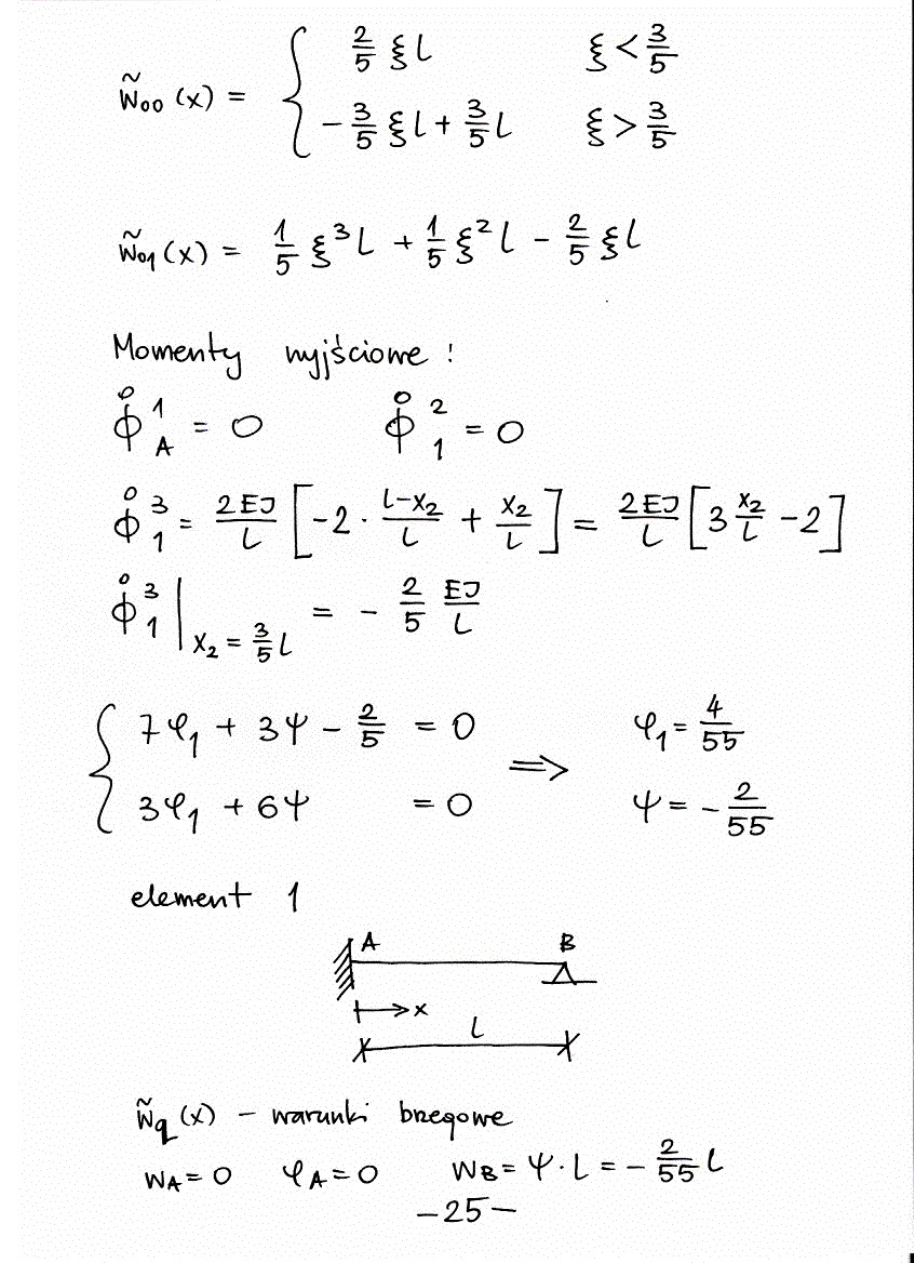 w̃₀₀ (x) = { 2/5 ξ L    ξ < 3/5
- 3/5 ξ L + 3/5 L    ξ > 3/5
w̃₀₁ (x) = 1/5 ξ³ L + 1/5 ξ² L - 2/5 ξ L
Momenty wyjściowe :
ϕ̊¹_A = 0    ϕ̊²₁ = 0
ϕ̊³₁ = 2EJ/L [ -2 · (L-x₂)/L + x₂/L ] = 2EJ/L [ 3 x₂/L - 2 ]
ϕ̊³₁ |_{x₂ = 3/5 L} = - 2/5 EJ/L
{ 7φ₁ + 3ψ - 2/5 = 0    ⟹    φ₁ = 4/55
3φ₁ + 6ψ = 0    ψ = - 2/55
element 1
A    B
x
L
w̃q (x) - warunki brzegowe
w_A = 0    φ_A = 0    w_B = ψ · L = - 2/55 L
-25-